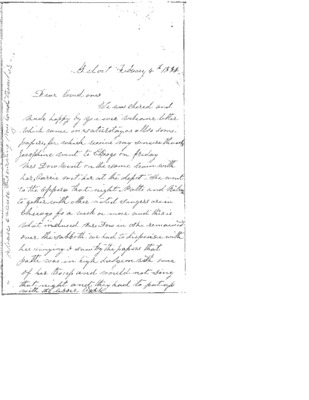 Beloit February 4th 188
Dear loved one
We was cheared and
made happy by your welcome letter
which came on saterday as allso some
papers, for which receive my sincere thanks
Josephine went to Chicago on friday
Mrs Dow went on the same train with
her, Carrie met her at the depot. She went
to the oppera that night Patti and
to gether with other noted singers are in
Chicago for a week or more and this is
what induced Mrs Dow in she remained
over the Sabbath we had to dispense with
her singing I seen by the papers that
patti was in high dudgeon with some
of her troup and would not sing
that night and they had to put up
with the above
please excuse the